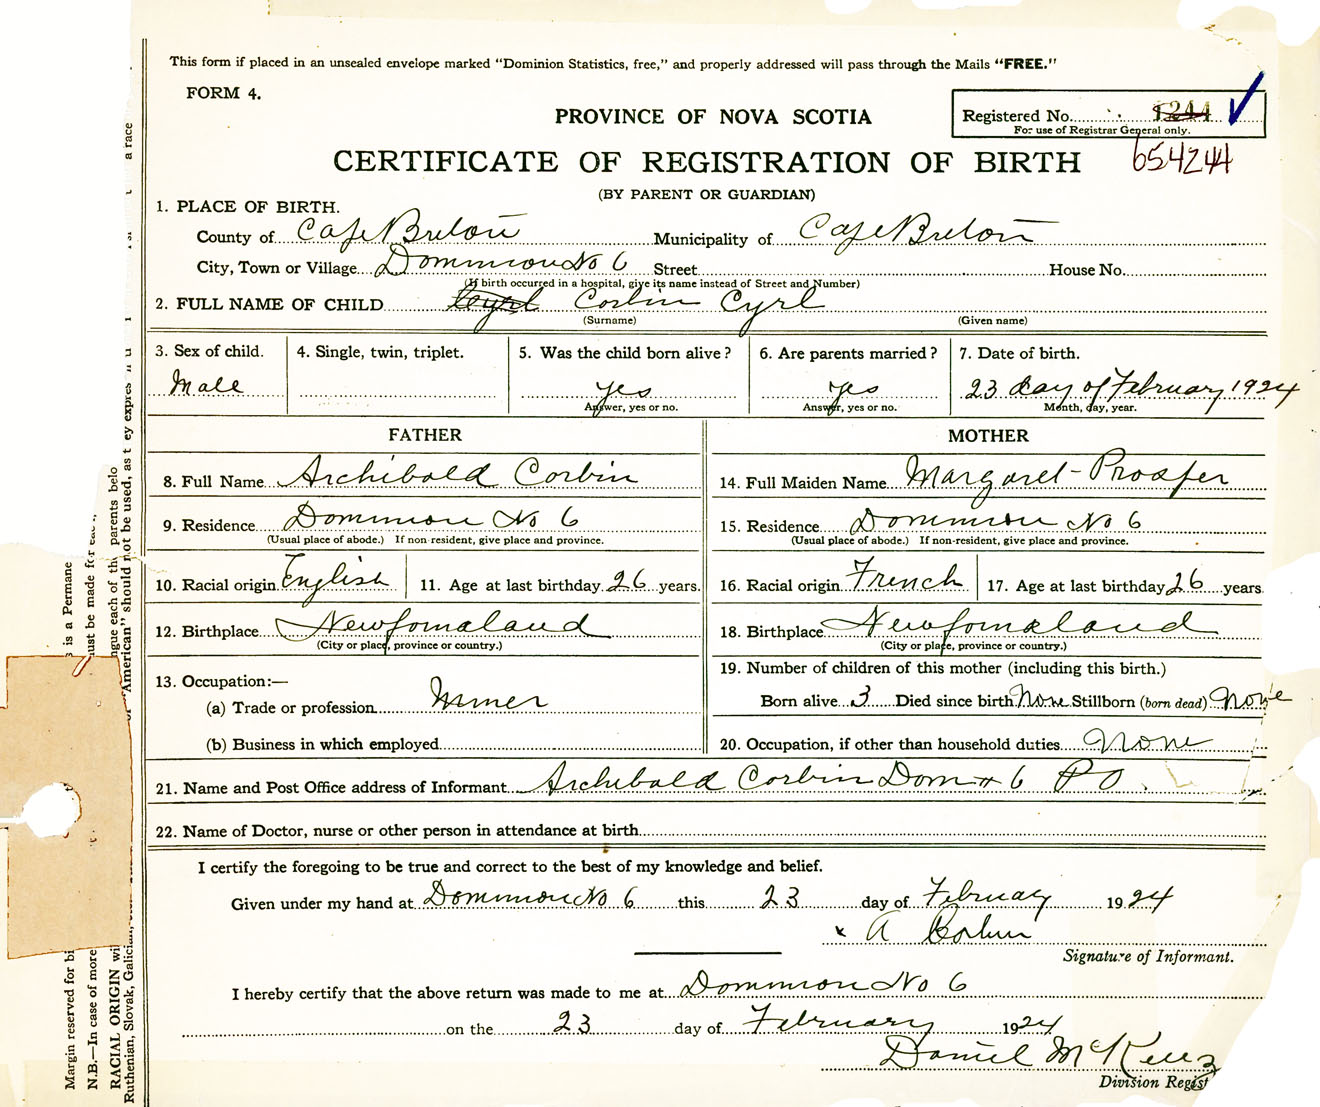 This form if placed in an unsealed envelope marked "Dominion Statistics, free," and properly addressed will pass through the Mails "FREE."
FORM 4.
PROVINCE OF NOVA SCOTIA
Registered No. 1244
For use of Registrar General only.
654244
CERTIFICATE OF REGISTRATION OF BIRTH
(BY PARENT OR GUARDIAN)
1. PLACE OF BIRTH.
County of Cape Breton Municipality of Cape Breton
City, Town or Village Dominion No 6 Street House No.
(If birth occurred in a hospital, give its name instead of Street and Number)
2. FULL NAME OF CHILD Corbin Cyrl
(Surname) (Given name)
3. Sex of child. 4. Single, twin, triplet. 5. Was the child born alive? 6. Are parents married? 7. Date of birth.
Male yes yes 23 day of February 1924
Answer, yes or no. Answer, yes or no. Month, day, year.
FATHER MOTHER
8. Full Name Archibald Corbin 14. Full Maiden Name Margaret Prosper
9. Residence Dominion No 6 15. Residence Dominion No 6
(Usual place of abode.) If non-resident, give place and province. (Usual place of abode.) If non-resident, give place and province.
10. Racial origin English 11. Age at last birthday 26 years. 16. Racial origin French 17. Age at last birthday 26 years
12. Birthplace Newfomaland 18. Birthplace Newfomaland
(City or place, province or country.) (City or place, province or country.)
13. Occupation:— 19. Number of children of this mother (including this birth.)
(a) Trade or profession Miner Born alive 3 Died since birth None Stillborn (born dead) None
(b) Business in which employed 20. Occupation, if other than household duties None
21. Name and Post Office address of Informant Archibald Corbin Dom # 6 PO
22. Name of Doctor, nurse or other person in attendance at birth
I certify the foregoing to be true and correct to the best of my knowledge and belief.
Given under my hand at Dominion No 6 this 23 day of February 1924
x A Corbin
Signature of Informant.
I hereby certify that the above return was made to me at Dominion No 6
on the 23 day of February 1924
Daniel McKenz
Division Regist
Margin reserved for bi
s is a Permane
N.B.—In case of more
ust be made for eac
RACIAL ORIGIN wi
ngue each of th parents belo
Ruthenian, Slovak, Galician,
"American" should not be used, as t ey expres
a race